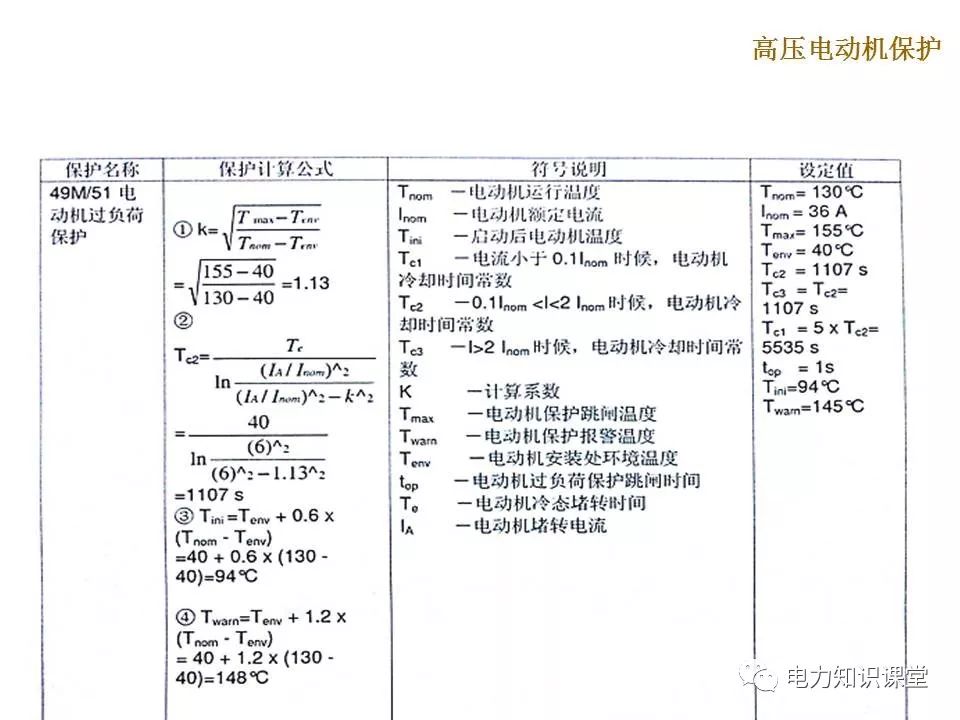 高压电动机保护
保护名称
保护计算公式
符号说明
设定值
49M/51 电
动机过负荷
保护
① k=√(T max−Tenv / Tnom−Tenv)
=√(155−40 / 130−40) =1.13
②
Tc2= Te / ln (IA/Inom)^2 / (IA/Inom)^2−k^2
= 40 / ln (6)^2 / (6)^2−1.13^2
=1107 s
③ Tini=Tenv + 0.6 x
(Tnom - Tenv)
=40 + 0.6 x (130 -
40)=94℃
④ Twarn=Tenv + 1.2 x
(Tnom - Tenv)
= 40 + 1.2 x (130 -
40)=148℃
Tnom －电动机运行温度
Inom －电动机额定电流
Tini －启动后电动机温度
Tc1 －电流小于 0.1Inom 时候，电动机
冷却时间常数
Tc2 －0.1Inom <I<2 Inom 时候，电动机冷
却时间常数
Tc3 －I>2 Inom 时候，电动机冷却时间常
数
K －计算系数
Tmax －电动机保护跳闸温度
Twarn －电动机保护报警温度
Tenv －电动机安装处环境温度
top －电动机过负荷保护跳闸时间
Te －电动机冷态堵转时间
IA －电动机堵转电流
Tnom= 130℃
Inom = 36 A
Tmax= 155℃
Tenv = 40℃
Tc2 = 1107 s
Tc3 = Tc2=
1107 s
Tc1 = 5 x Tc2=
5535 s
top = 1s
Tini=94℃
Twarn=145℃
电力知识课堂